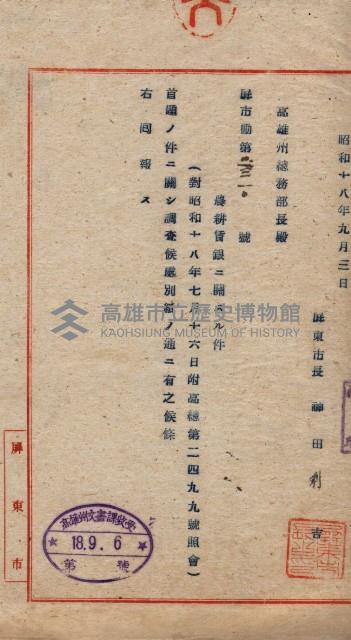 昭和十八年九月三日
屏東市長 神田利吉
高雄州總務部長殿
屏市勸第 號
農耕賃銀ニ關スル件
(對昭和十八年七月十六日附高總第二四九九號照會)
首題ノ件ニ關シ調査候處別紙ノ通ニ有之候條
右回報ス
屏東市
高雄州文書課收受
18.9.6
第 號
高雄市立歷史博物館
KAOHSIUNG MUSEUM OF HISTORY